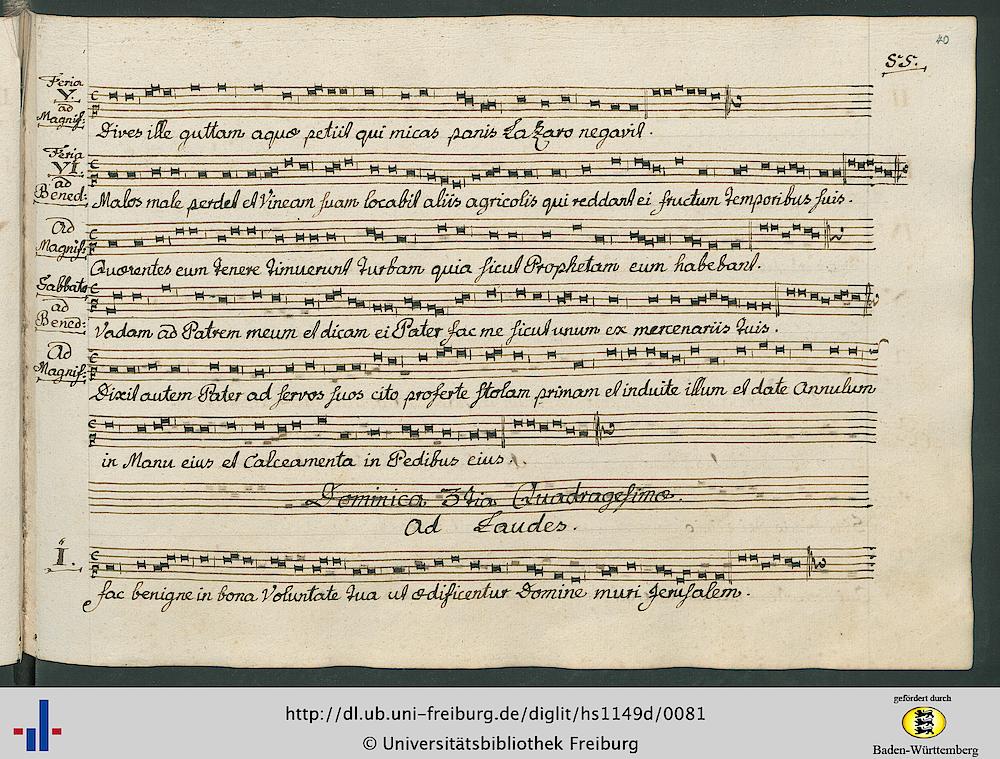 40
55.
Feria V. ad Magnif:
Dives ille guttam aquæ petiit qui micas panis Lazaro negavit.
Feria VI. ad Bened:
Malos male perdet et Vineam suam locabit aliis agricolis qui reddant ei fructum temporibus suis.
Ad Magnif:
Quærentes eum tenere timuerunt turbam quia sicut Prophetam eum habebant.
Sabbato ad Bened:
Vadam ad Patrem meum et dicam ei Pater fac me sicut unum ex mercenariis tuis.
Ad Magnif:
Dixit autem Pater ad servos suos cito proferte stolam primam et induite illum et date Annulum
in Manu eius et Calceamenta in Pedibus eius.
Dominica 3tia Quadragesimæ.
Ad Laudes.
I.
fac benigne in bona Voluntate tua ut ædificentur Domine muri Jerusalem.
http://dl.ub.uni-freiburg.de/diglit/hs1149d/0081
© Universitätsbibliothek Freiburg
gefördert durch
Baden-Württemberg